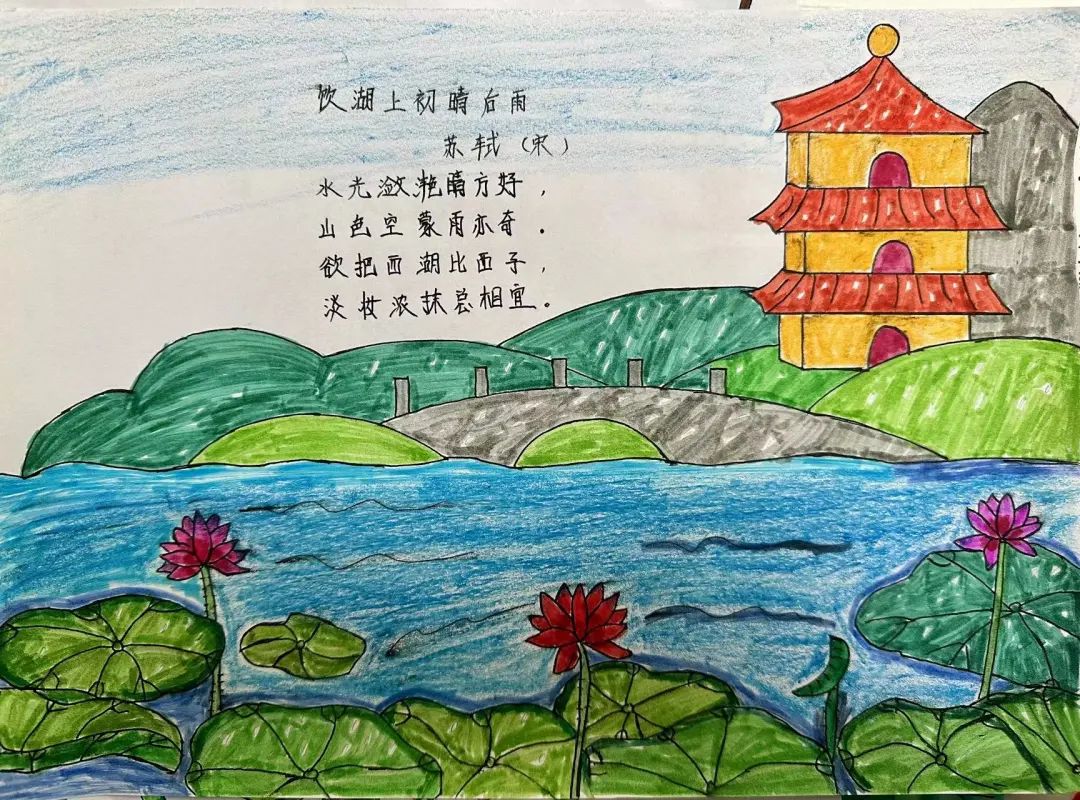 饮湖上初晴后雨
苏轼（宋）
水光潋滟晴方好，
山色空蒙雨亦奇。
欲把西湖比西子，
淡妆浓抹总相宜。